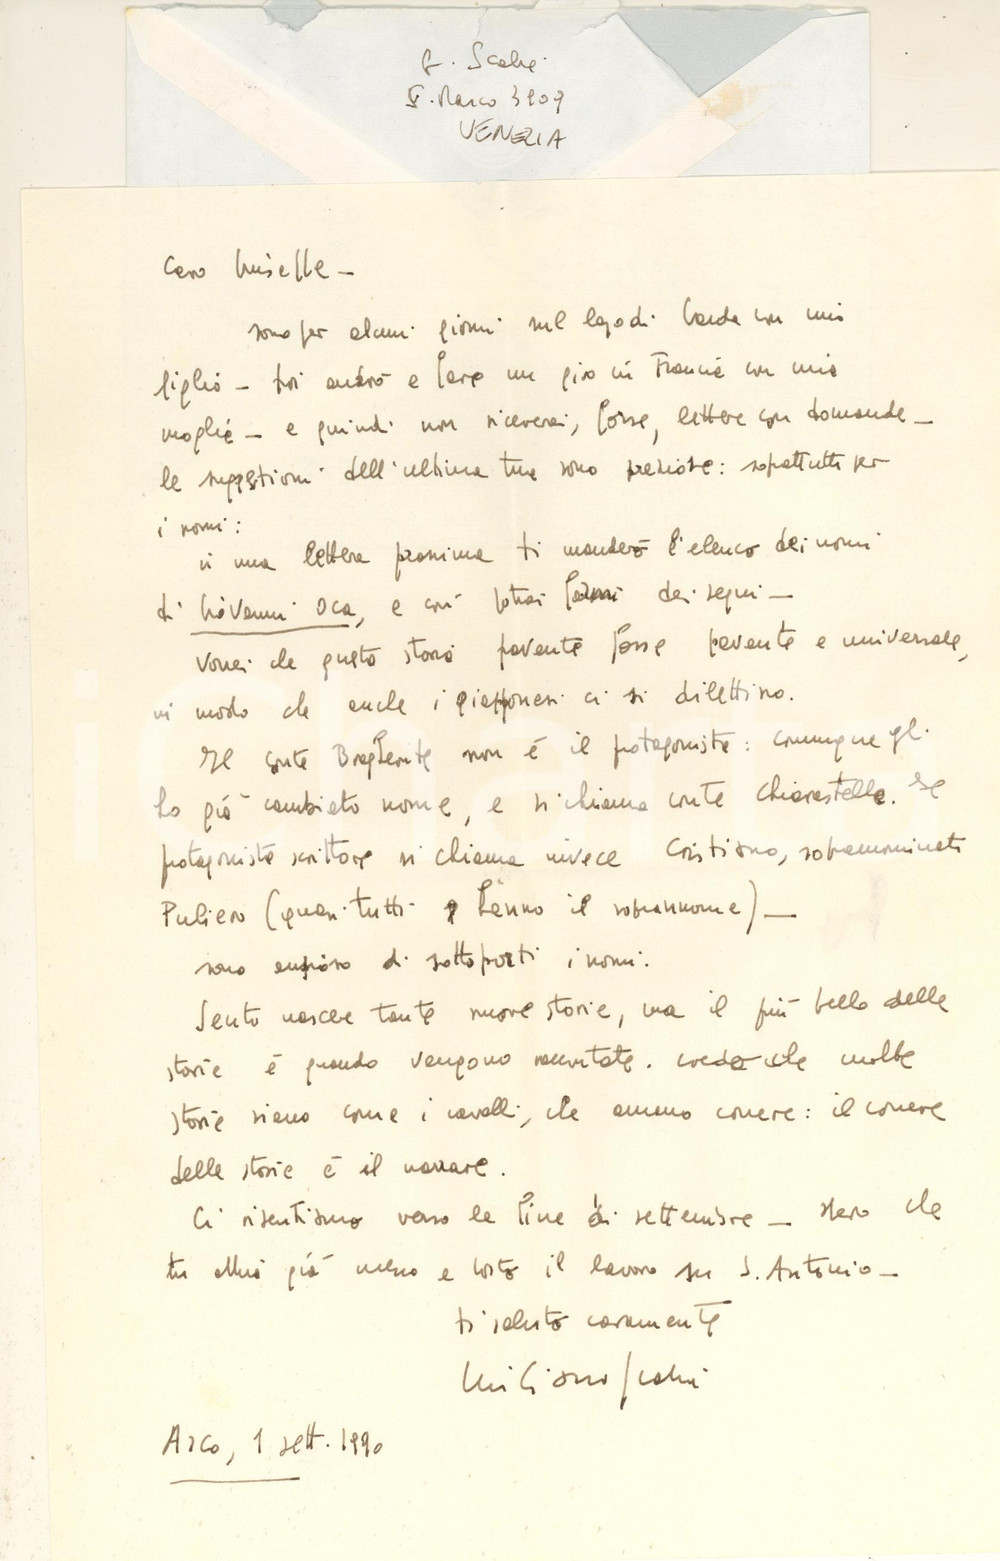 G. Scabia
S. Marco 3909
VENEZIA
Caro
sono per alcuni giorni sul lago di Garda con mia
figlia – poi andrò a fare un giro in Francia con mia
moglie – e quindi non riceverai, forse, lettere con domande –
le suggestioni dell'ultima tua sono preziose: soprattutto per
i nomi:
in una lettera prossima ti manderò l'elenco dei nomi
di Giovanni Oca, e così potrai farmi dei segni –
Vorrei che questa storia pavante fosse pavante e universale,
in modo che anche i giapponesi ci si dilettino.
Il conte non è il protagonista: comunque gli
ho già cambiato nome, e si chiama conte Chiarastella. Il
protagonista scrittore si chiama invece Cristiano, sopranominato
Puliero (quasi tutti hanno il soprannome) –
sono curioso di sottoporti i nomi.
Sento nascere tante nuove storie, ma il più bello delle
storie è quando vengono raccontate. credo che molte
storie siano come i cavalli, che amano correre: il correre
delle storie è il narrare.
Ci risentiamo verso la fine di settembre – spero che
tu abbia già messo a posto il lavoro su S. Antonio –
ti saluto caramente
Giuliano Scabia
Arco, 1 sett. 1990